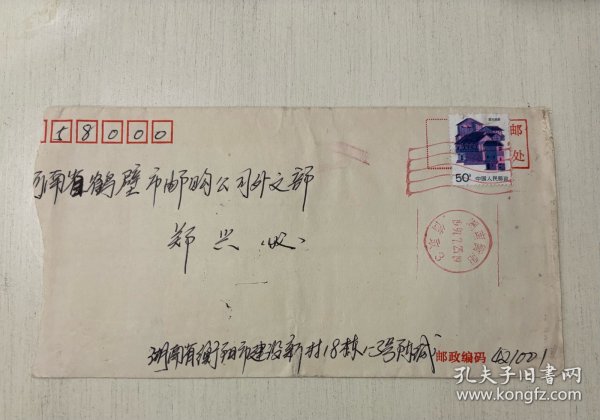 58000
邮
处
50分 中国人民邮政
河南省鹤壁市邮购公司外文部
郑兴(收)
湖南省衡阳市建设新村18栋
邮政编码 421001
孔夫子旧书网
www.kongfz.com